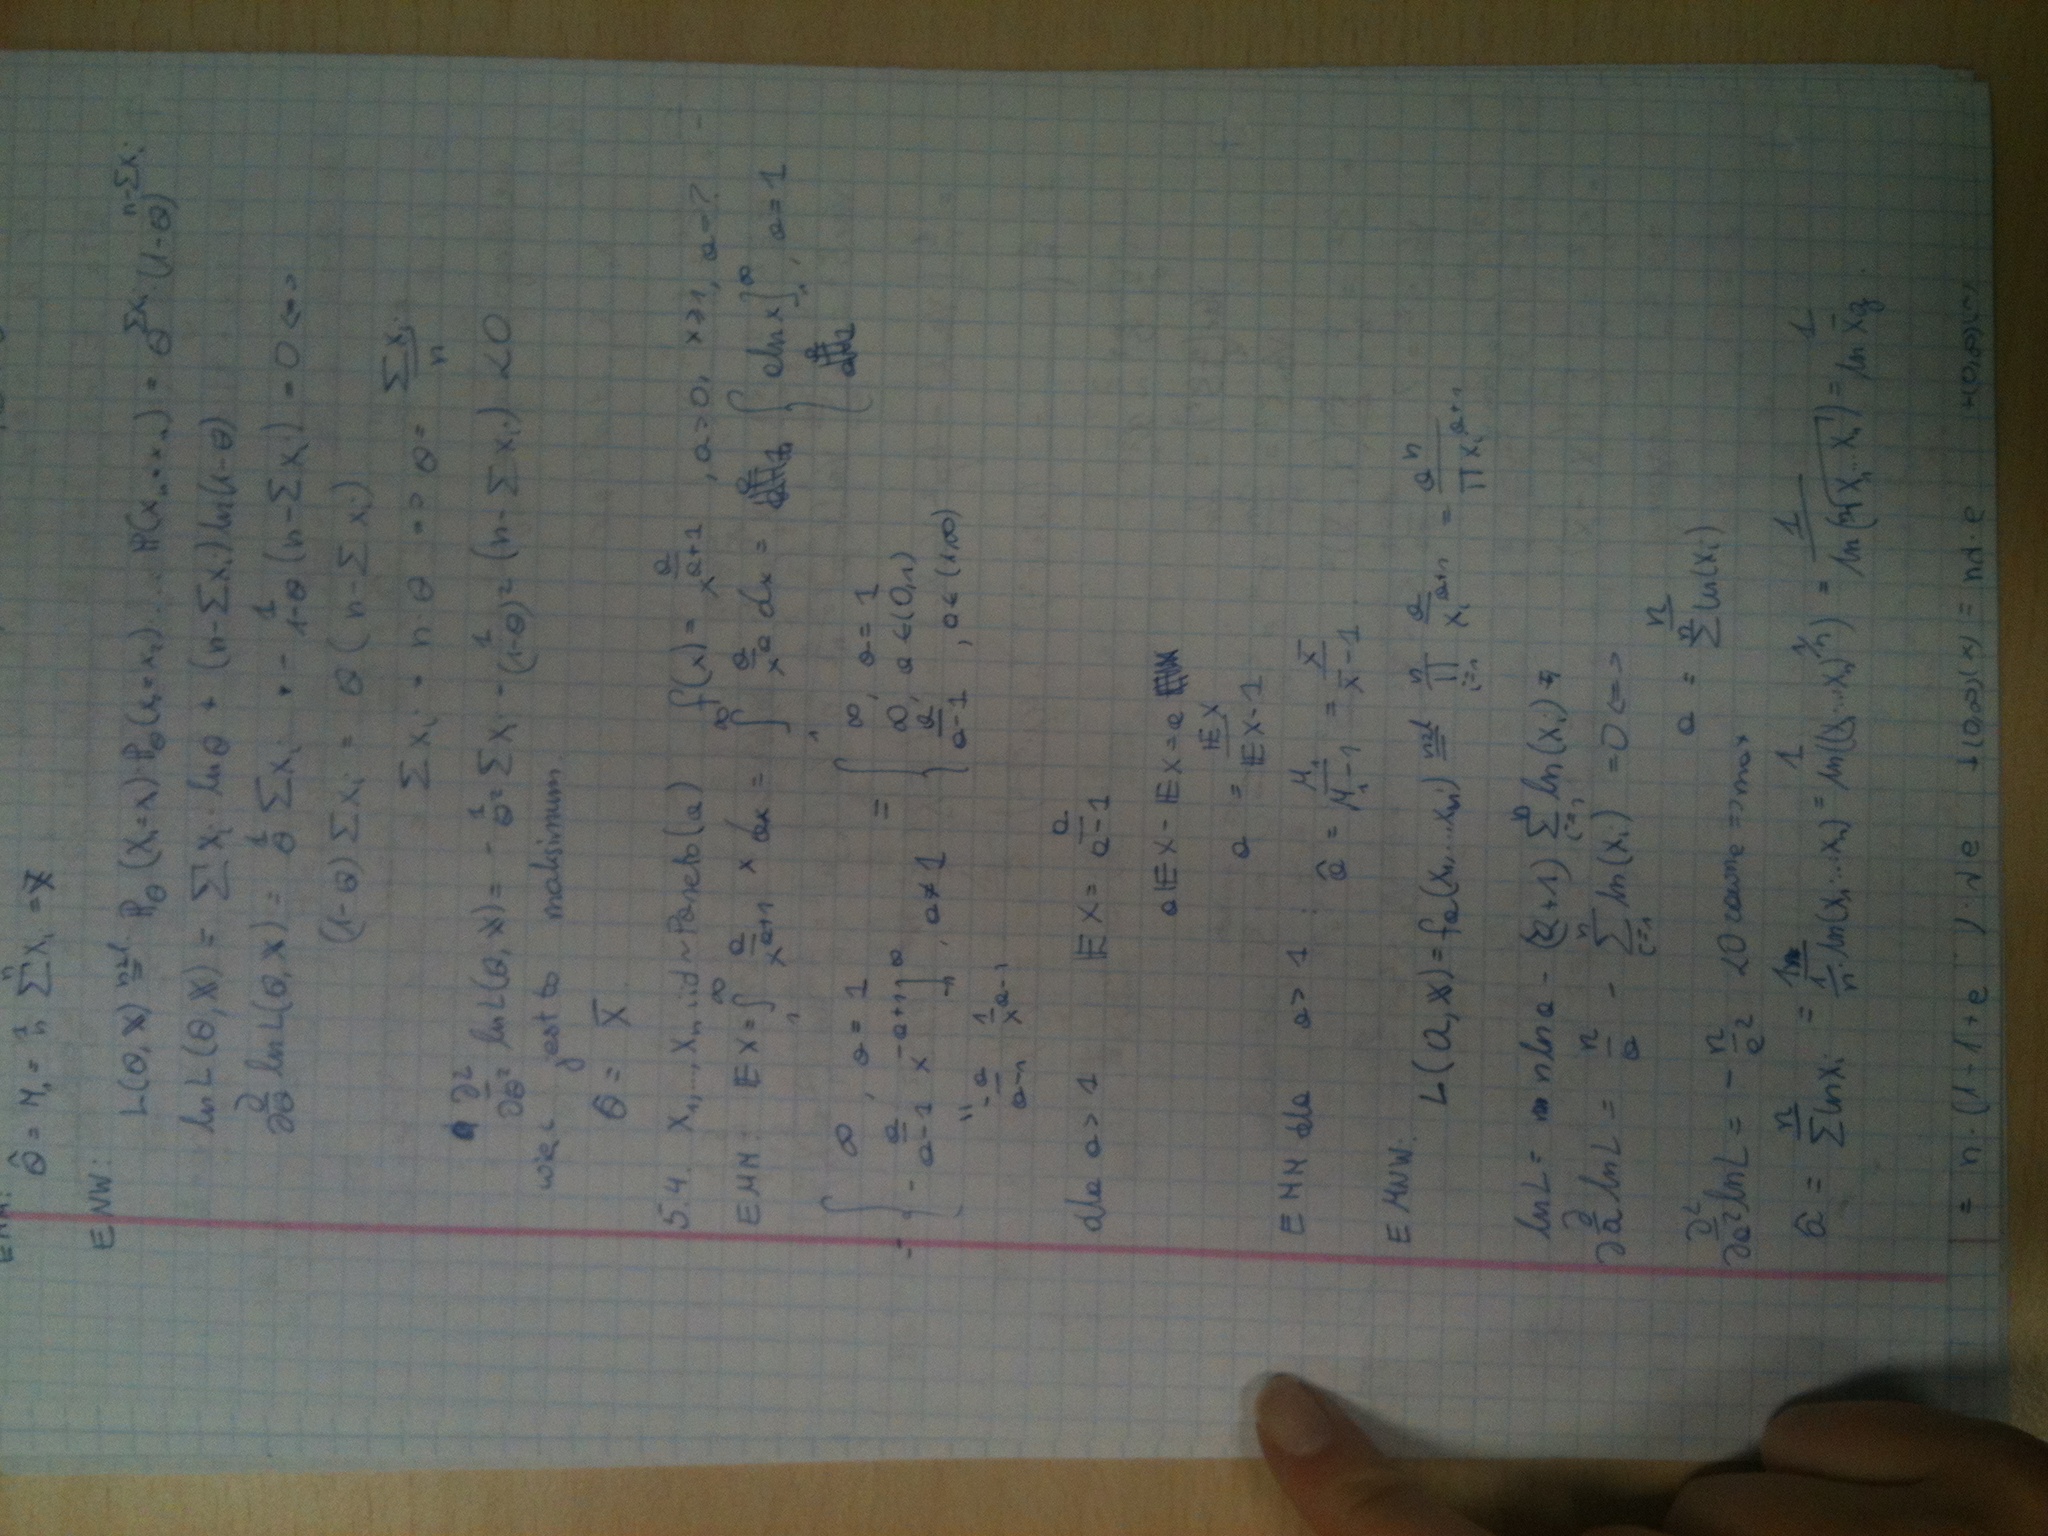 EMM:
θ̂ = M₁ = 1/n Σⁿ Xᵢ = X̄
ENW:
L(θ, X) =ⁿᶻˡ ℙ_θ(X₁=x₁)·ℙ_θ(x₂=x₂) .... ℙ(xₙ=xₙ) = θ^(Σxᵢ)·(1-θ)^(n-Σxᵢ)
ln L(θ, X) = Σ Xᵢ · ln θ + (n-Σxᵢ) ln(1-θ)
∂/∂θ ln L(θ, X) = 1/θ Σxᵢ - 1/(1-θ) (n-Σxᵢ) = 0 <=>
(1-θ) Σxᵢ = θ (n-Σxᵢ)
Σxᵢ = n·θ => θ = Σxᵢ/n
∂²/∂θ² ln L(θ, X) = - 1/θ² Σxᵢ - 1/(1-θ)² (n-Σxᵢ) <0
więc jest to maksimum.
θ̂ = X̄
5.4. X₁,...,Xₙ iid ~ Pareto(a) f(x) = a/x^(a+1), a>0, x≥1, a=?
EMM: EX = ∫₁^∞ a/x^(a+1) x dx = ∫₁^∞ a/x^a dx = { a ln x]₁^∞, a=1
= { ∞, a=1 = { ∞, a=1
∞, a∈(0,1)
-a/(a-1) x^(-a+1)]₁^∞, a≠1 a/(a-1), a∈(1,∞)
" -a/(a-1) 1/x^(a-1)
dla a>1 EX = a/(a-1)
aEX - EX = a
a = EX/(EX-1)
EMM dla a>1 : â = M₁/(M₁-1) = X̄/(X̄-1)
EMNW:
L(a, X) = f_a(x₁,...,xₙ) =ⁿᶻˡ ∏ᵢ₌₁ⁿ a/xᵢ^(a+1) = aⁿ/∏xᵢ^(a+1)
ln L = n ln a - (a+1) Σᵢ₌₁ⁿ ln(xᵢ)
∂/∂a ln L = n/a - Σᵢ₌₁ⁿ ln(xᵢ) = 0 <=>
a = n/Σⁿ ln(xᵢ)
∂²/∂a² ln L = - n/a² <0 zawsze => max
â = n/Σ ln xᵢ = 1/(1/n · ln(x₁·...·xₙ)) = 1/ln((x₁...xₙ)^(1/n)) = 1/ln(ⁿ√(x₁...xₙ)) = 1/ln x̄g.
= n·(1-1+e